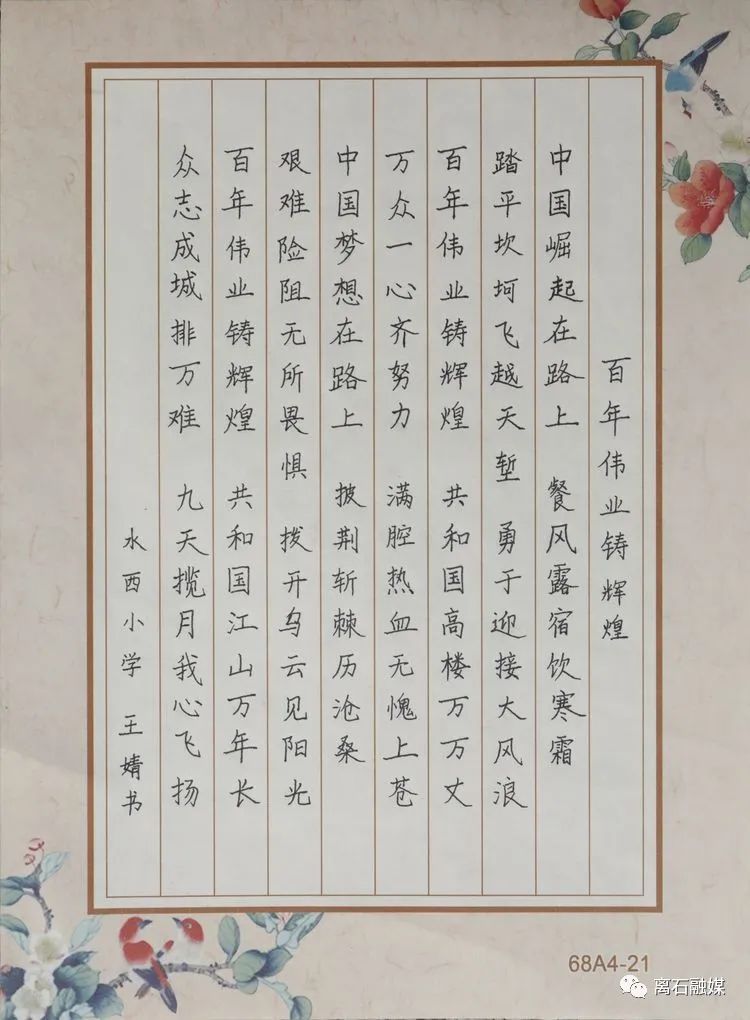 百年伟业铸辉煌
中国崛起在路上 餐风露宿饮寒霜
踏平坎坷飞越天堑 勇于迎接大风浪
百年伟业铸辉煌 共和国高楼万万丈
万众一心齐努力 满腔热血无愧上苍
中国梦想在路上 披荆斩棘历沧桑
艰难险阻无所畏惧 拨开乌云见阳光
百年伟业铸辉煌 共和国江山万年长
众志成城排万难 九天揽月我心飞扬
水西小学 王婧书
68A4-21
离石融媒